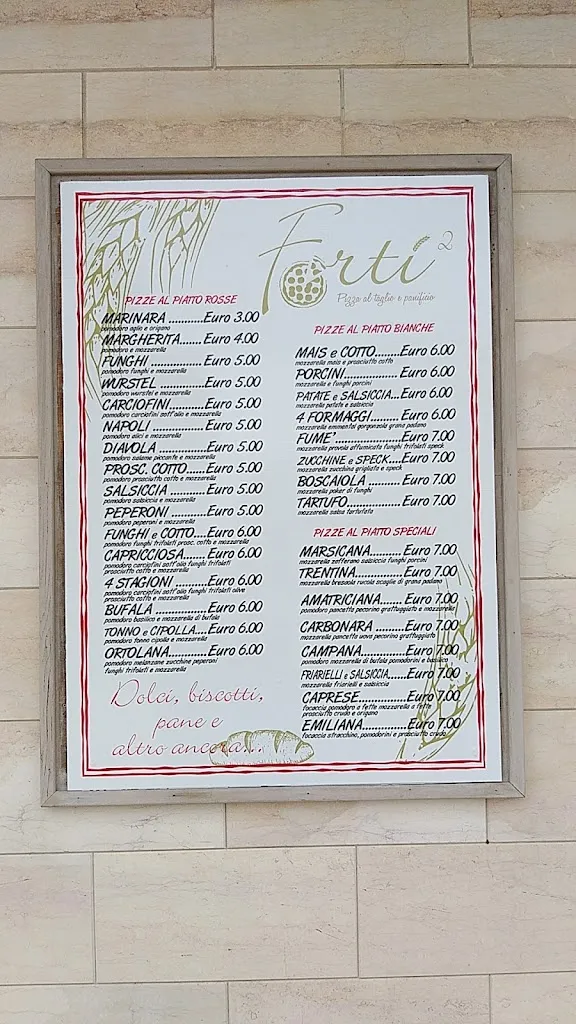 Forti 2
Pizza al taglio e panificio
PIZZE AL PIATTO ROSSE
MARINARA ..........Euro 3.00
pomodoro aglio e origano
MARGHERITA......Euro 4.00
pomodoro e mozzarella
FUNGHI ...............Euro 5.00
pomodoro funghi e mozzarella
WURSTEL ............Euro 5.00
pomodoro wurstel e mozzarella
CARCIOFINI.........Euro 5.00
pomodoro carciofini sott'olio e mozzarella
NAPOLI ...............Euro 5.00
pomodoro alici e mozzarella
DIAVOLA .............Euro 5.00
pomodoro salame piccante e mozzarella
PROSC. COTTO.....Euro 5.00
pomodoro prosciutto cotto e mozzarella
SALSICCIA ..........Euro 5.00
pomodoro salsiccia e mozzarella
PEPERONI ...........Euro 5.00
pomodoro peperoni e mozzarella
FUNGHI e COTTO....Euro 6.00
pomodoro funghi trifolati prosc. cotto e mozzarella
CAPRICCIOSA.......Euro 6.00
pomodoro carciofini sott'olio funghi trifolati
prosciutto cotto e mozzarella
4 STAGIONI .........Euro 6.00
pomodoro carciofini sott'olio funghi trifolati olive
prosciutto cotto e mozzarella
BUFALA ...............Euro 6.00
pomodoro basilico e mozzarella di bufala
TONNO e CIPOLLA....Euro 6.00
pomodoro tonno cipolla e mozzarella
ORTOLANA...........Euro 6.00
pomodoro melanzane zucchine peperoni
funghi trifolati e mozzarella
Dolci, biscotti,
pane e
altro ancora...
PIZZE AL PIATTO BIANCHE
MAIS e COTTO.......Euro 6.00
mozzarella mais e prosciutto cotto
PORCINI...............Euro 6.00
mozzarella e funghi porcini
PATATE e SALSICCIA...Euro 6.00
mozzarella patate e salsiccia
4 FORMAGGI........Euro 6.00
mozzarella emmental gorgonzola grana padano
FUME'..................Euro 7.00
mozzarella provola affumicata funghi trifolati speck
ZUCCHINE e SPECK....Euro 7.00
mozzarella zucchine grigliate e speck
BOSCAIOLA .........Euro 7.00
mozzarella poker di funghi
TARTUFO..............Euro 7.00
mozzarella salsa tartufata
PIZZE AL PIATTO SPECIALI
MARSICANA..........Euro 7.00
mozzarella zafferano salsiccia funghi porcini
TRENTINA.............Euro 7.00
mozzarella bresaola rucola scaglie di grana padano
AMATRICIANA.......Euro 7.00
pomodoro pancetta pecorino grattuggiato e mozzarella
CARBONARA ........Euro 7.00
mozzarella pancetta uova pecorino grattuggiato
CAMPANA.............Euro 7.00
pomodoro mozzarella di bufala pomodorini e basilico
FRIARIELLI e SALSICCIA......Euro 7.00
mozzarella friarielli e salsiccia
CAPRESE...............Euro 7.00
focaccia pomodoro a fette mozzarella a fette
prosciutto crudo e origano
EMILIANA.............Euro 7.00
focaccia stracchino, pomodorini e prosciutto crudo